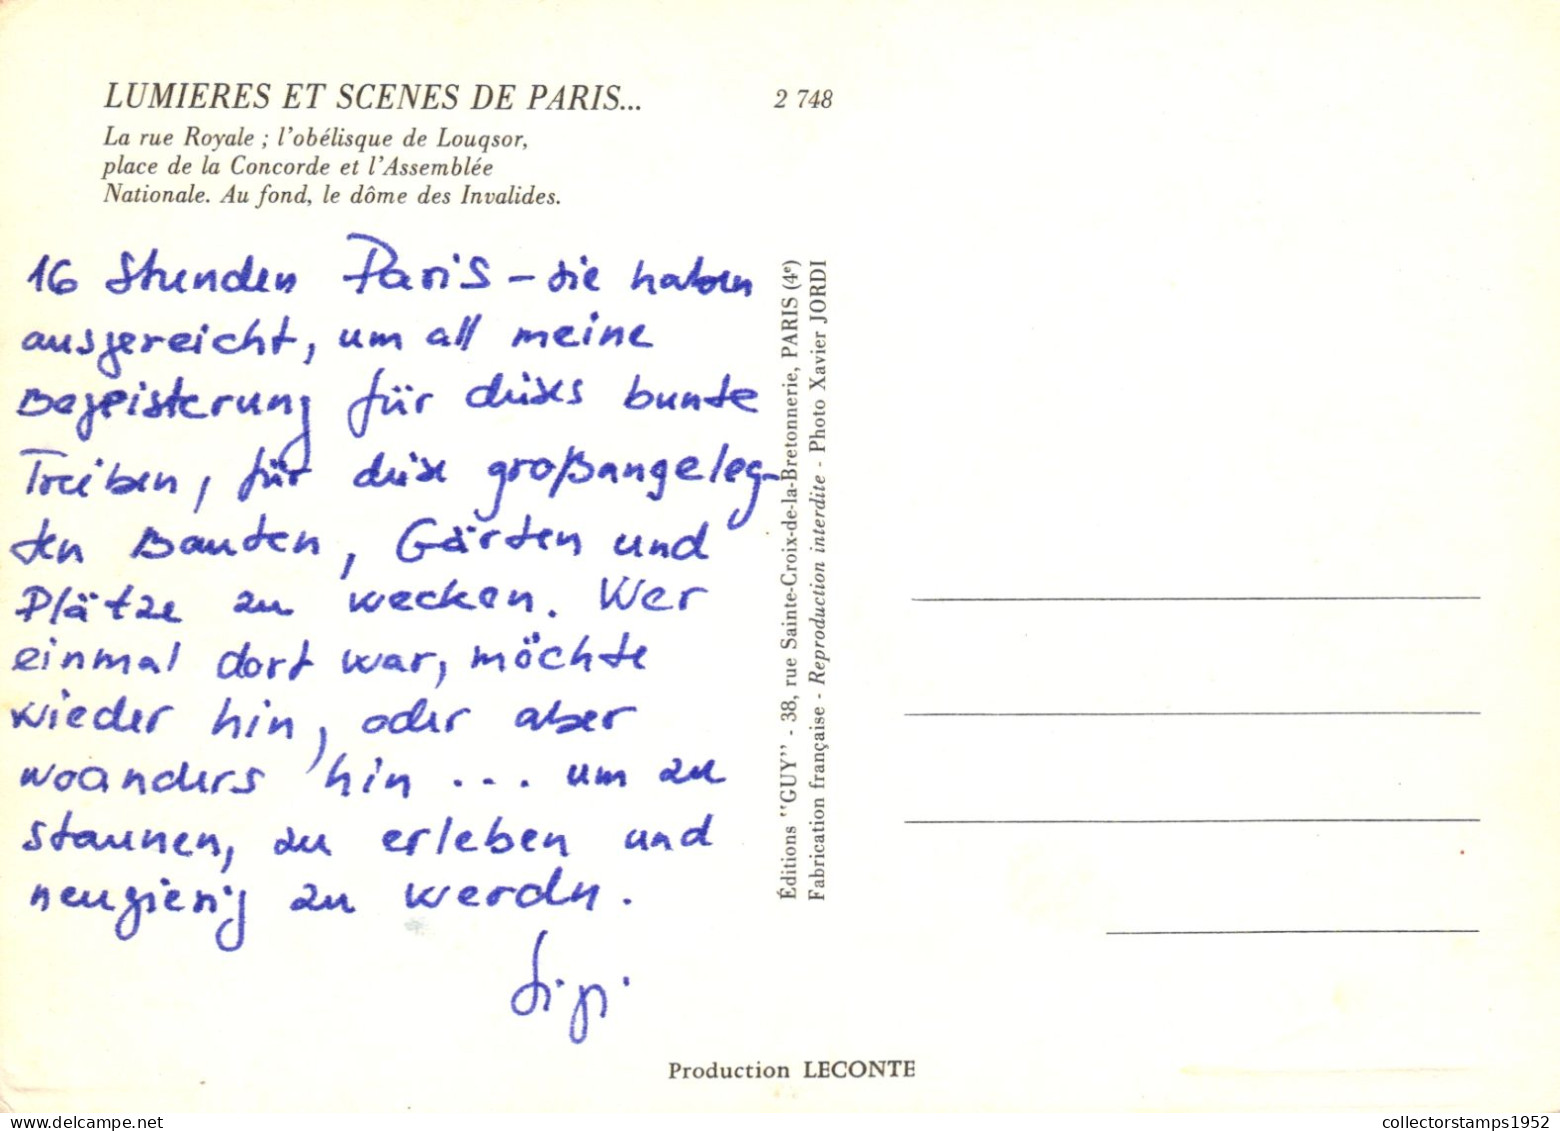 LUMIERES ET SCENES DE PARIS...
2 748
La rue Royale ; l'obélisque de Louqsor,
place de la Concorde et l'Assemblée
Nationale. Au fond, le dôme des Invalides.
16 Stunden Paris – sie haben
ausgereicht, um all meine
Begeisterung für dieses bunte
Treiben, für diese großangeleg-
ten Bauten, Gärten und
Plätze zu wecken. Wer
einmal dort war, möchte
wieder hin, oder aber
woanders hin ... um zu
staunen, zu erleben und
neugierig zu werden.
Sigi
Éditions "GUY" - 38, rue Sainte-Croix-de-la-Bretonnerie, PARIS (4e)
Fabrication française - Reproduction interdite - Photo Xavier JORDI
Production LECONTE
collectorstamps1952